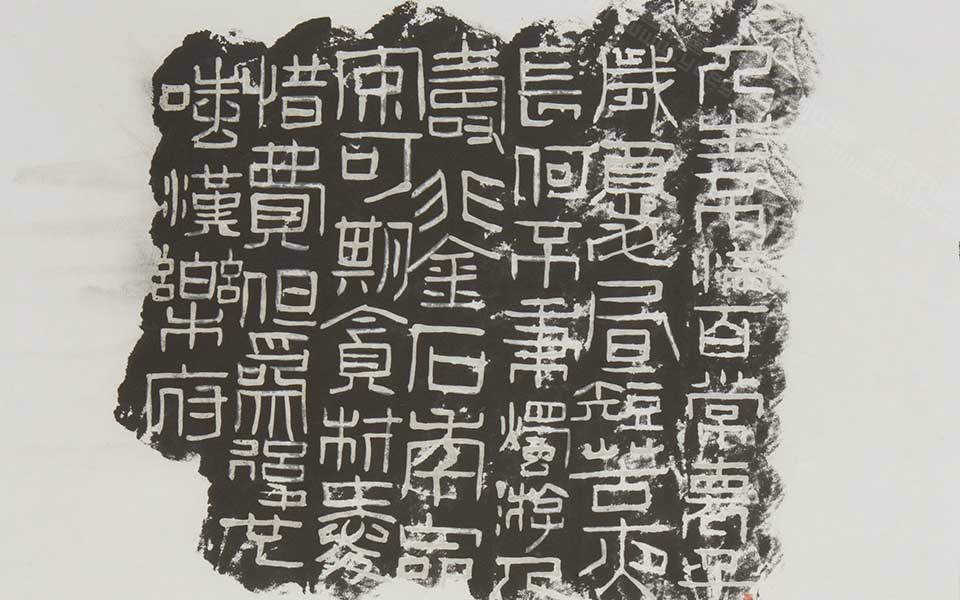 人生不滿百常懷千
歲憂晝短苦夜
長何不秉燭游人
壽非金石年命
安可期貪財愛
惜費但爲後世
嗤漢樂府